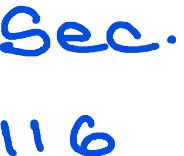 Sec.
116